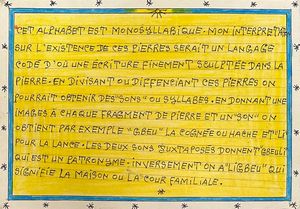 CET ALPHABET EST MONOSYLLABIQUE. MON INTERPRETAT
SUR L'EXISTENCE DE CES PIERRES SERAIT UN LANGAGE
CODE D'OU UNE ECRITURE FINEMENT SCULPTÉE DANS LA
PIERRE. EN DIVISANT OU DIFFENCIANT CES PIERRES ON
POURRAIT OBTENIR DES "SONS" OU SYLLABES. EN DONNANT UNE
IMAGES À CHAQUE FRAGMENT DE PIERRE ET UN "SON" ON
OBTIENT PAR EXEMPLE "GBEU" LA COGNÉE OU HACHE ET "LI"
POUR LA LANCE. LES DEUX SONS JUXTAPOSÉS DONNENT GBEULI
QUI EST UN PATRONYME. INVERSEMENT ON A "LIGBEU" QUI
SIGNIFIE LA MAISON OU LA COUR FAMILIALE.